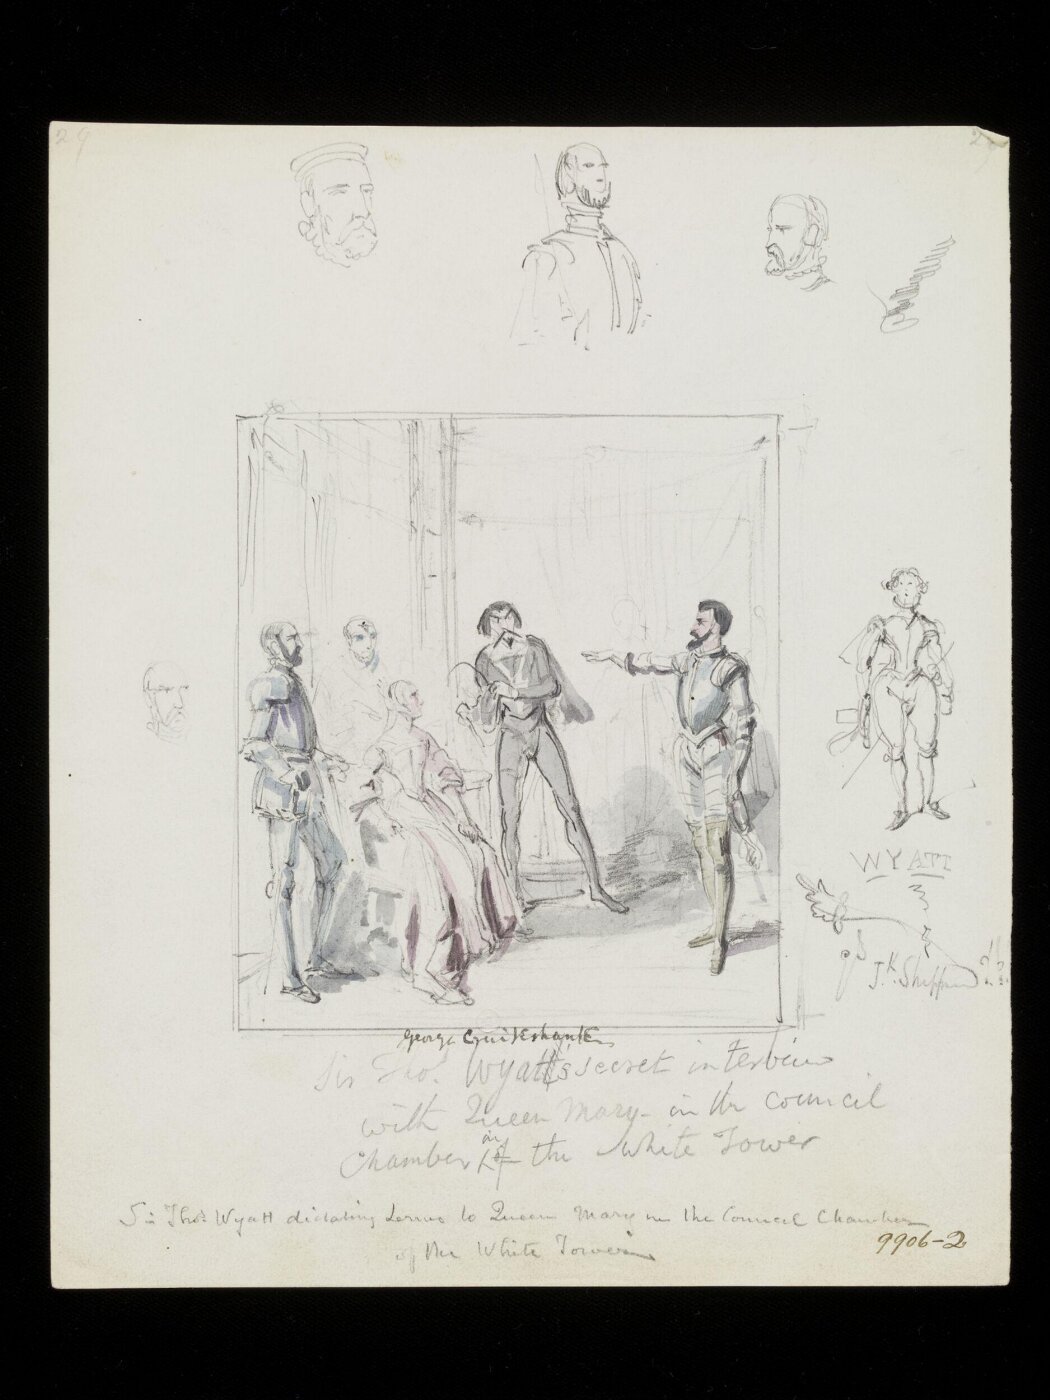 29
WYATT
Jk. Sheppard
George Cruikshank
Sir Thos. Wyatt's secret interview
with Queen Mary - in the council
chamber in of the White Tower
Sir Thos Wyatt dictating terms to Queen Mary in the Council Chamber
of the White Tower
9906-2